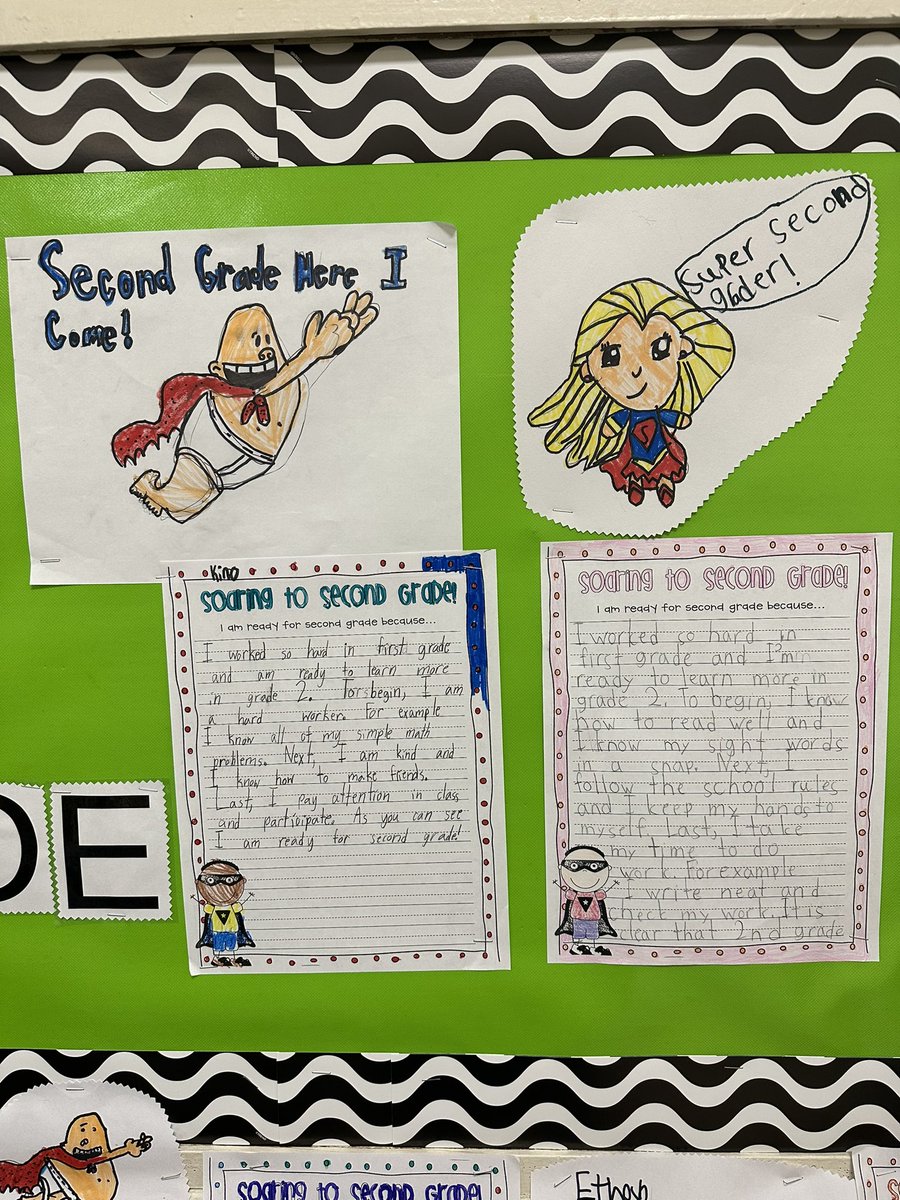 Second Grade Here I
Come!
Super Second
gbder!
Kino
Soaring to Second Grade!
I am ready for second grade because...
I worked so hard in first grade
and am ready to learn more
in grade 2. To begin, I am
a hard worker. For example
I know all of my simple math
problems. Next, I am kind and
I know how to make friends.
Last, I pay attention in class
and participate. As you can see
I am ready for second grade!
Soaring to Second Grade!
I am ready for second grade because...
I worked so hard in
first grade and I'm
ready to learn more in
grade 2. To begin, I know
how to read well and
I know my sight words
in a snap. Next, I
follow the school rules
and I keep my hands to
myself. Last, I take
my time to do
work. For example
I write neat and
check my work. It is
clear that 2nd grade
DE
Soaring to Second Grade!
Ethan